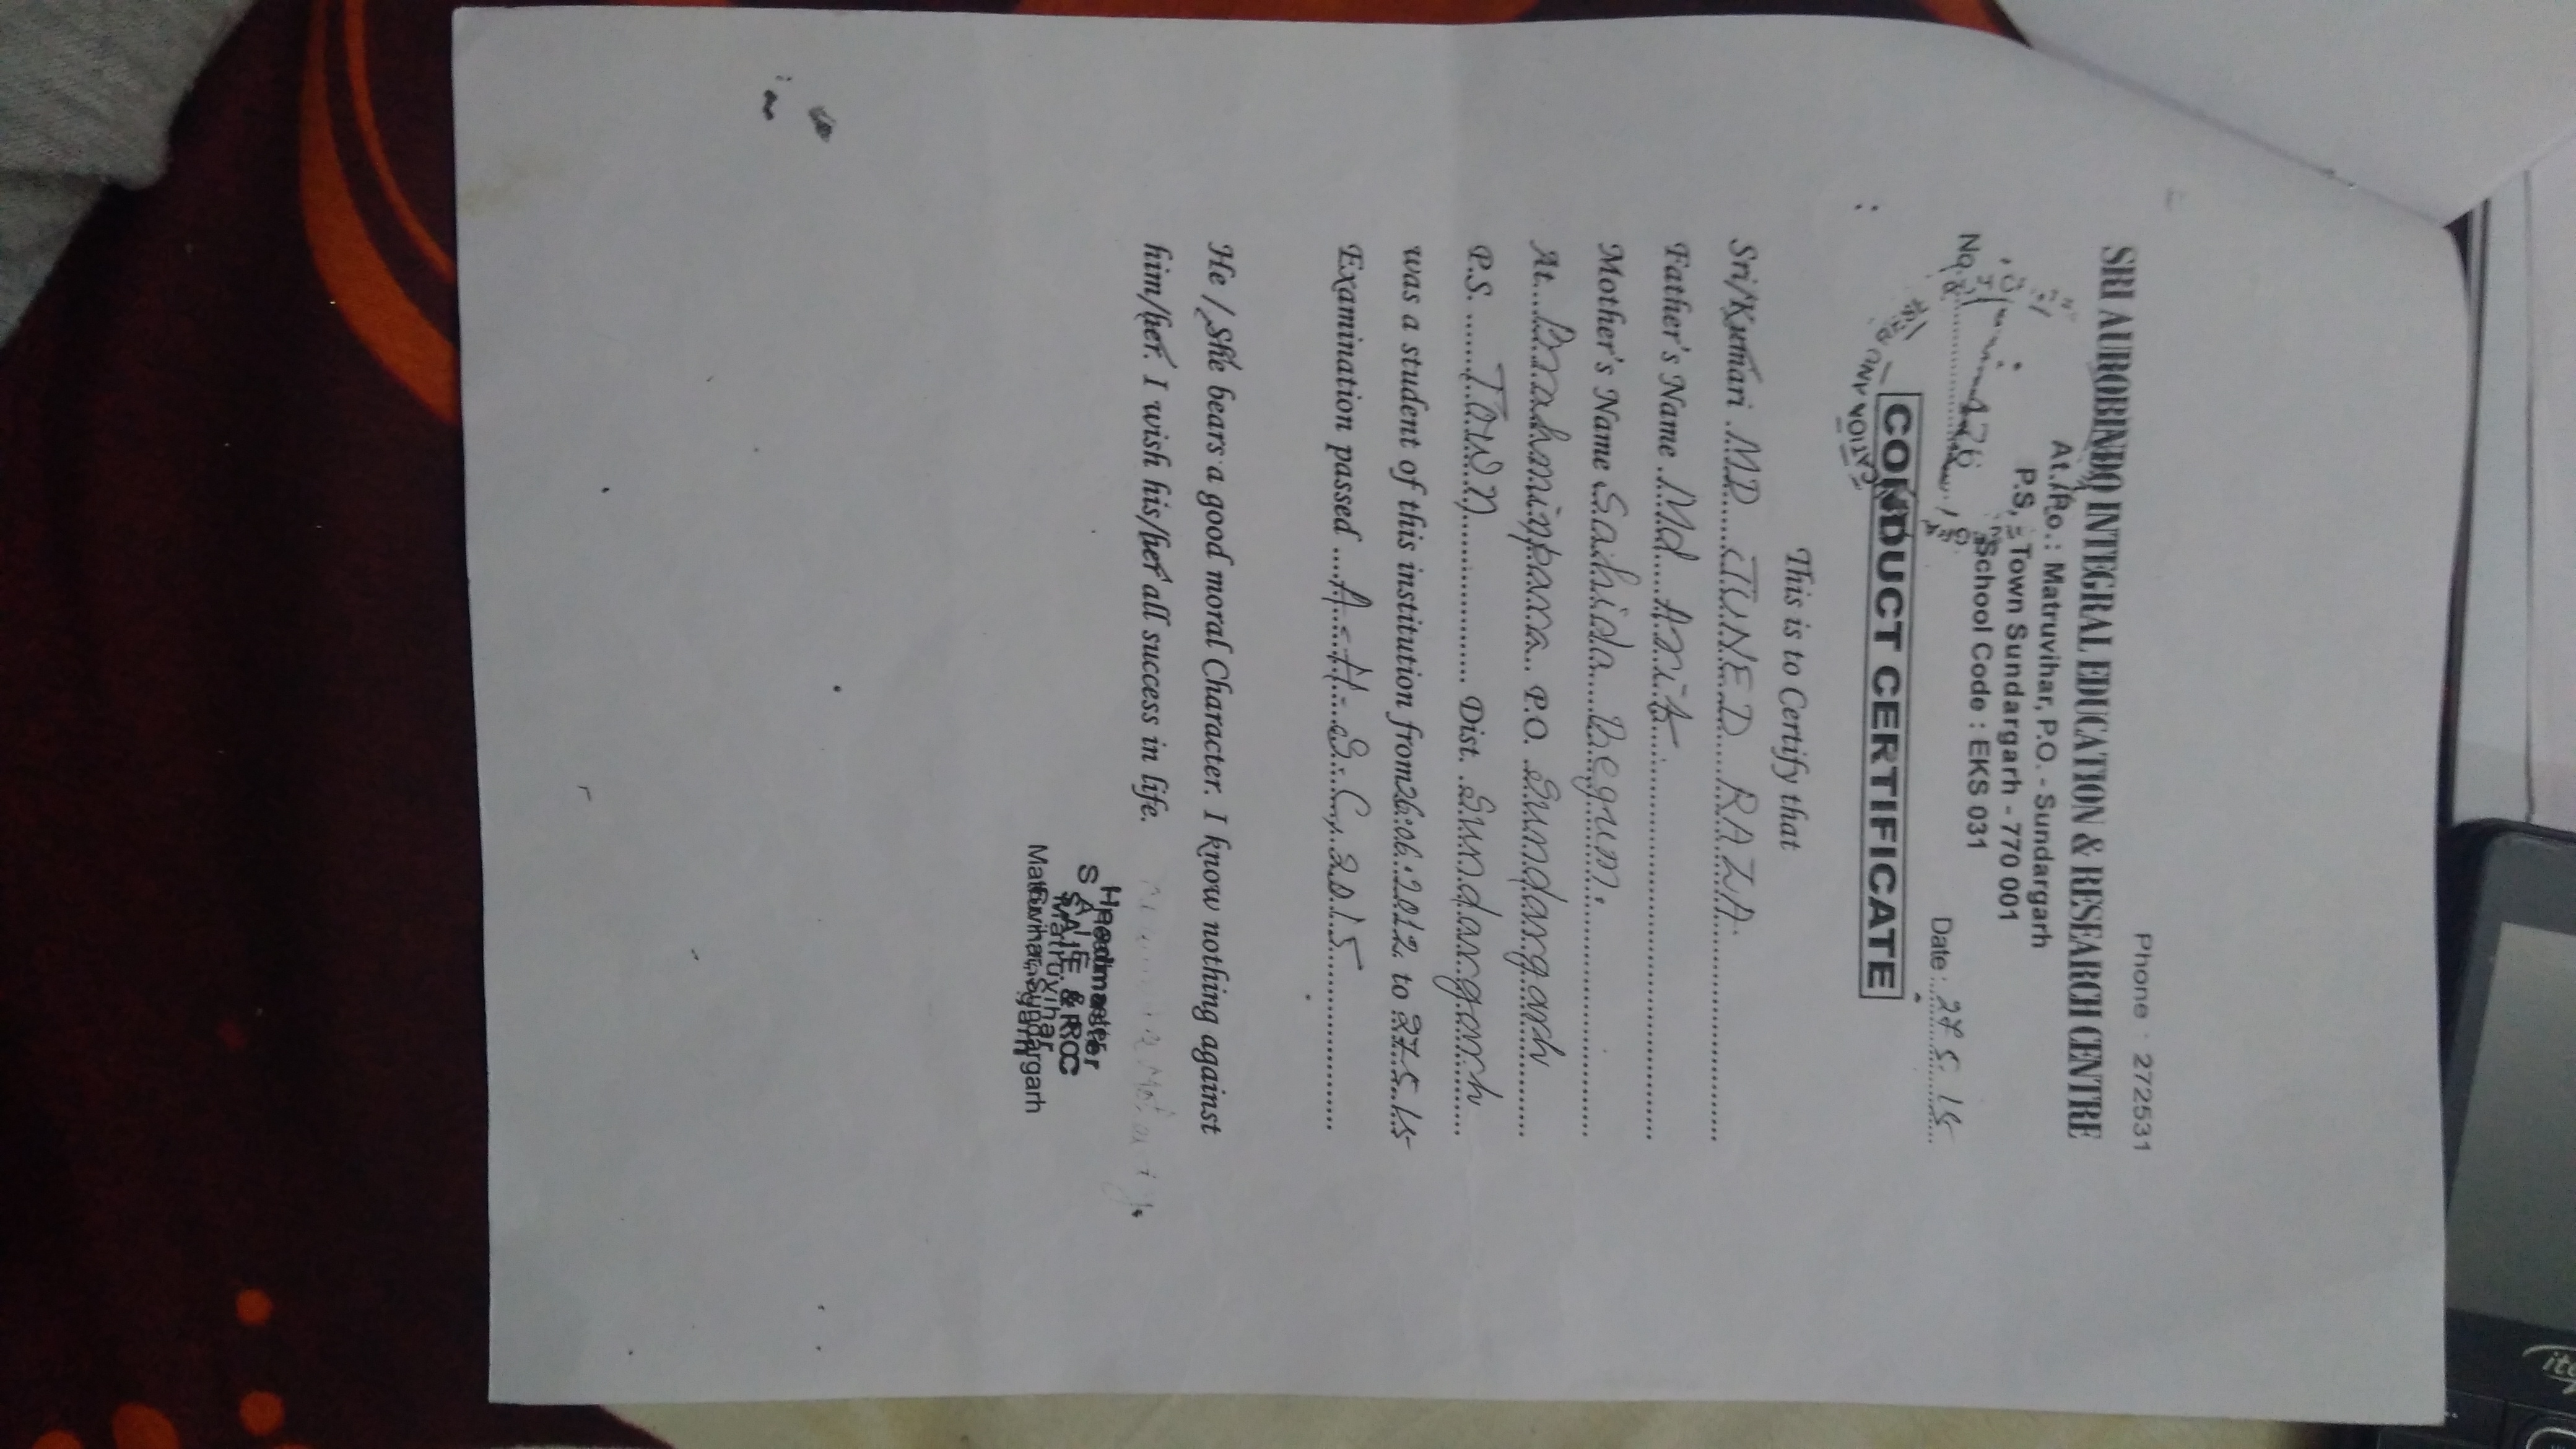 Phone : 272531
SRI AUROBINDO INTEGRAL EDUCATION & RESEARCH CENTRE
At./Po.: Matruvihar, P.O. - Sundargarh
P.S. - Town Sundargarh - 770 001
School Code : EKS 031
No. 126 Date : 27 5. 15
CONDUCT CERTIFICATE
This is to Certify that
Sri/Kumari MD JUNED RAZA
Father's Name Md
Mother's Name Sahida Begum.
At Brahminpara P.O. Sundargarh
P.S. Town Dist. Sundargarh
was a student of this institution from 26.06.2012 to 27.5.15
Examination passed A.H.S.C, 2015
He / She bears a good moral Character. I know nothing against
him/her. I wish his/her all success in life.
Headmaster
S A I E & RC
Matruvihar, Sundargarh